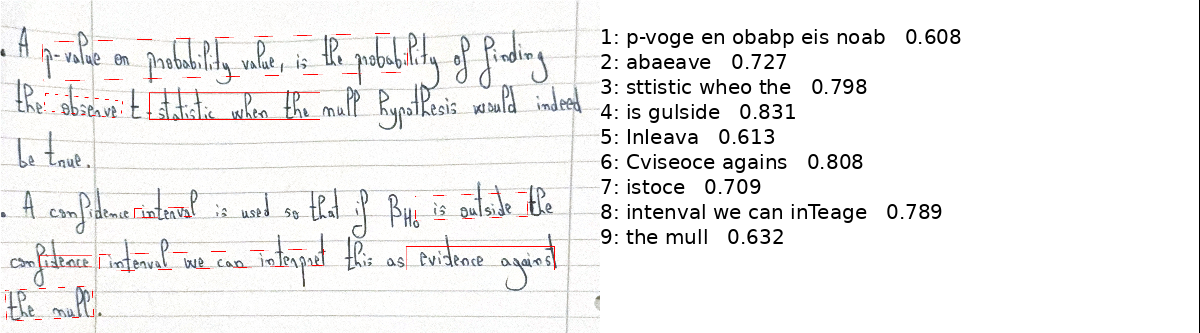 . A p-value en probability value, is the probability of finding
the observe t-statistic when the null hypothesis would indeed
be true.
. A confidence interval is used so that if βH0 is outside the
confidence interval we can interpret this as evidence against
the null.
1: p-voge en obabp eis noab 0.608
2: abaeave 0.727
3: sttistic wheo the 0.798
4: is gulside 0.831
5: lnleava 0.613
6: Cviseoce agains 0.808
7: istoce 0.709
8: intenval we can inTeage 0.789
9: the mull 0.632